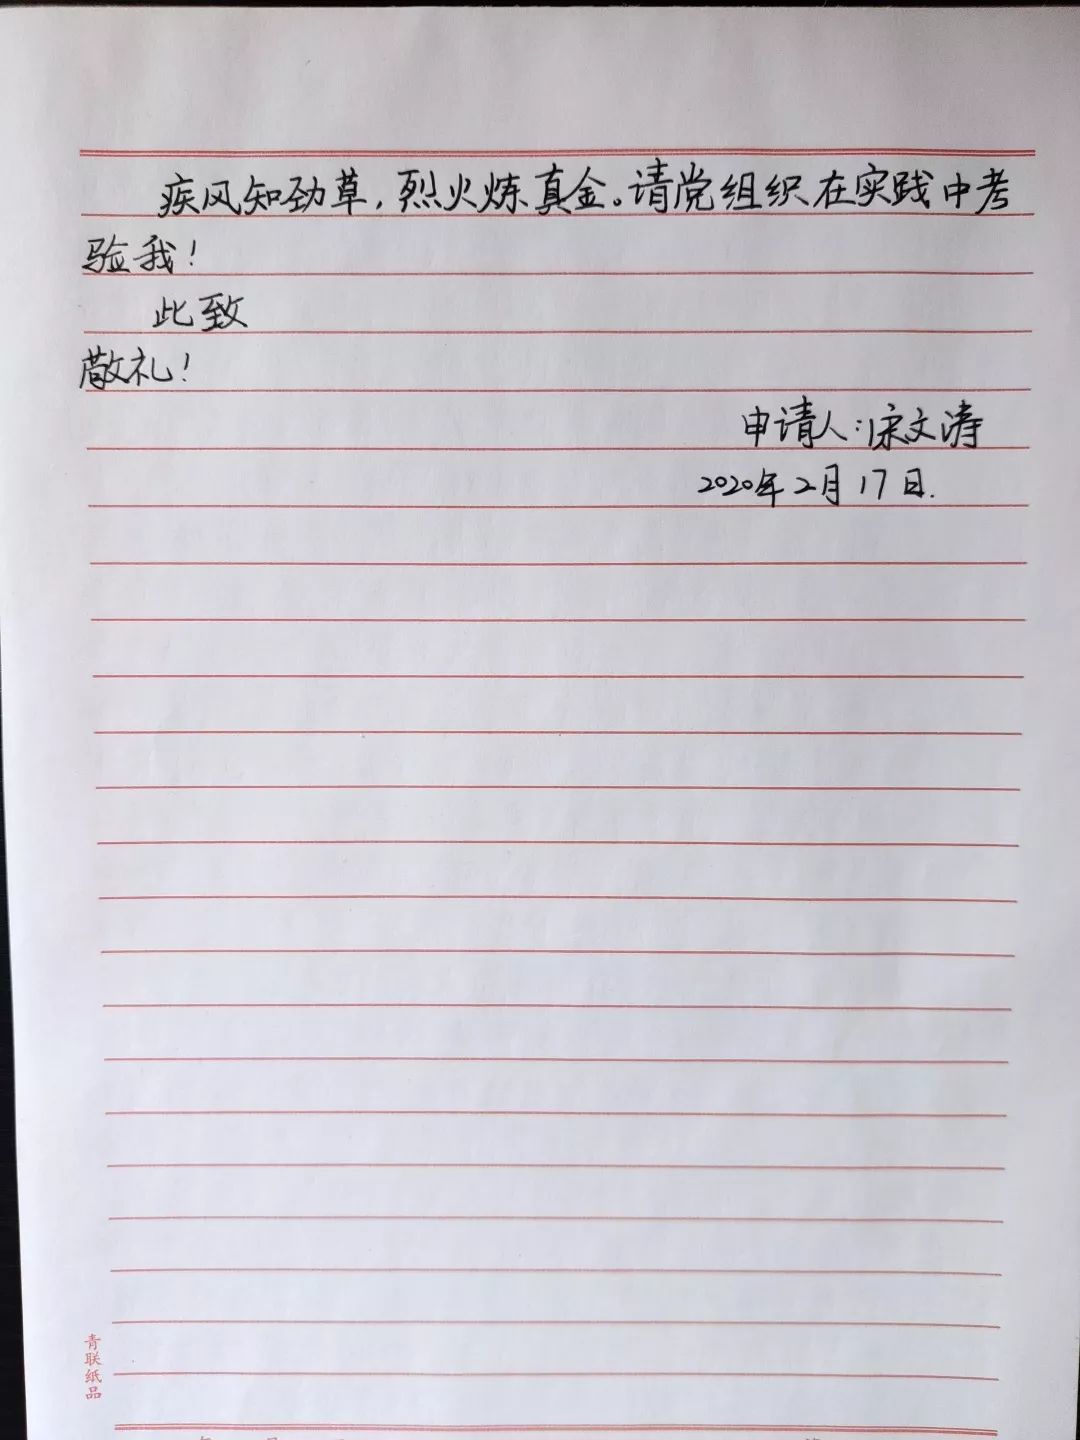 疾风知劲草,烈火炼真金。请党组织在实践中考
验我!
此致
敬礼!
申请人:宋文涛
2020年2月17日.
青联纸品